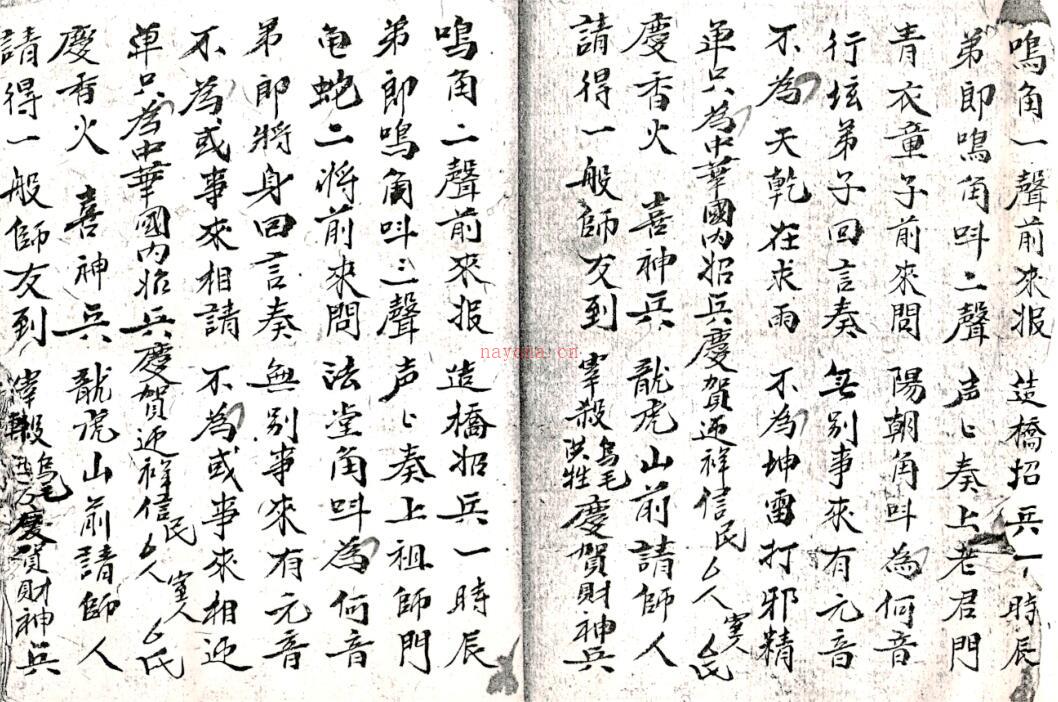 鳴角一聲前來报　造橋招兵一時辰
弟郎鳴角呌二聲　声々奏上老君門
青衣童子前來問　陽朝角呌為何音
行坛弟子回言奏　無别事來有元音
不為天乾在求雨　不為坤雷打邪精
单只為中華國内招兵慶賀迎祥信民厶人　室人厶氏
慶香火　喜神兵　龍虎山前請師人
請得一般師友到　宰殺烏毛洪牲慶賀財神兵
鳴角二聲前來报　造橋招兵一時辰
弟郎鳴角呌三聲　声々奏上祖師門
龟蛇二将前來問　法堂角呌為何音
弟郎將身回言奏　無别事來有元音
不為或事來相請　不為或事來相迎
单只為中華國内招兵慶賀迎祥信民厶人　室人厶氏
慶香火　喜神兵　龍虎山前請師人
請得一般師友到　宰殺烏毛慶賀財神兵
nayona.cn